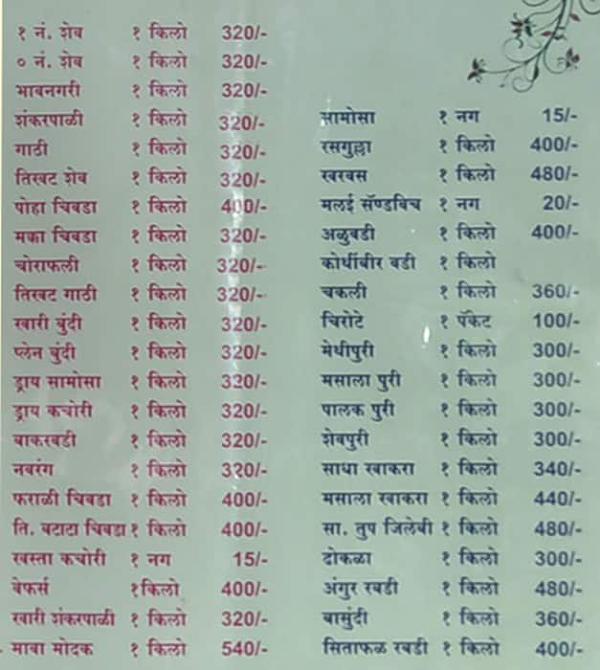 १ नं. शेव १ किलो 320/-
० नं. शेव १ किलो 320/-
भावनगरी १ किलो 320/-
शंकरपाळी १ किलो 320/-
गाठी १ किलो 320/-
तिखट शेव १ किलो 320/-
पोहा चिवडा १ किलो 400/-
मक्का चिवडा १ किलो 320/-
चोराफली १ किलो 320/-
तिखट गाठी १ किलो 320/-
खारी बुंदी १ किलो 320/-
प्लेन बुंदी १ किलो 320/-
ड्राय सामोसा १ किलो 320/-
ड्राय कचोरी १ किलो 320/-
बाकरवडी १ किलो 320/-
नवरंग १ किलो 320/-
फराळी चिवडा १ किलो 400/-
ति. बटाटा चिवडा १ किलो 400/-
खस्ता कचोरी १ नग 15/-
वेफर्स १किलो 400/-
खारी शंकरपाळी १ किलो 320/-
मावा मोदक १ किलो 540/-
सामोसा १ नग 15/-
रसगुल्ला १ किलो 400/-
खरवस १ किलो 480/-
मलई सॅण्डविच १ नग 20/-
अळुवडी १ किलो 400/-
कोथींबीर वडी १ किलो
चकली १ किलो 360/-
चिरोटे १ पॅकेट 100/-
मेथीपुरी १ किलो 300/-
मसाला पुरी १ किलो 300/-
पालक पुरी १ किलो 300/-
शेवपुरी १ किलो 300/-
साधा खाकरा १ किलो 340/-
मसाला खाकरा १ किलो 440/-
सा. तुप जिलेबी १ किलो 480/-
ढोकळा १ किलो 300/-
अंगुर रबडी १ किलो 480/-
बासुंदी १ किलो 360/-
सिताफळ रबडी १ किलो 400/-